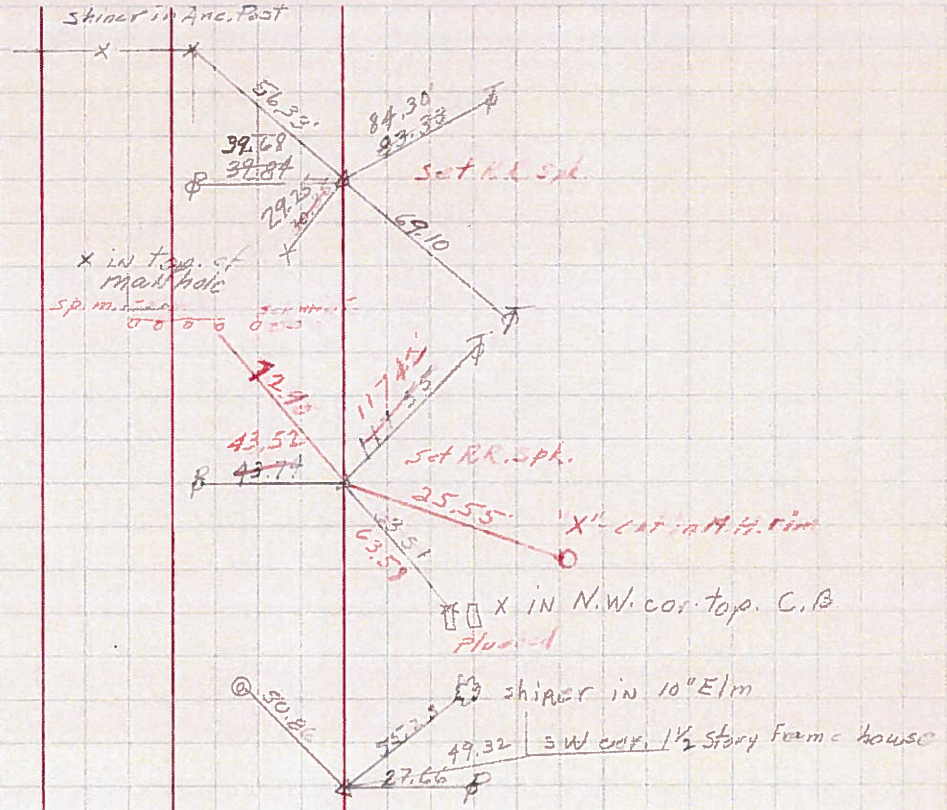 Shiner in Anc. Post
56.33'
84.30'
83.33
39.68
39.84
set R.R. Spk.
29.25'
69.10
X in top. of
manhole
sp. m.
72.90
117.45'
43,52
43.74
set R.R. Spk.
25.55'
"X" - cut in M.H. rim
63.51
63.59
X IN N.W. cor. top. C.B
Plugged
50.86
shiner in 10" Elm
55.25
49.32
S W cor. 1½ Story Frame house
27.66